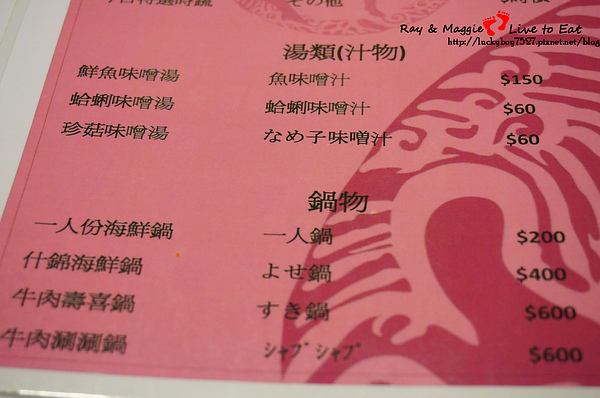 今日特選時蔬 その他 $時價
Ray & Maggie Live to Eat
http://luckyboy7527.pixnet.net/blog
湯類(汁物)
鮮魚味噌湯 魚味噌汁 $150
蛤蜊味噌湯 蛤蜊味噌汁 $60
珍菇味噌湯 なめ子味噌汁 $60
鍋物
一人份海鮮鍋 一人鍋 $200
什錦海鮮鍋 よせ鍋 $400
牛肉壽喜鍋 すき鍋 $600
牛肉涮涮鍋 ｼｬﾌﾞｼｬﾌﾞ $600